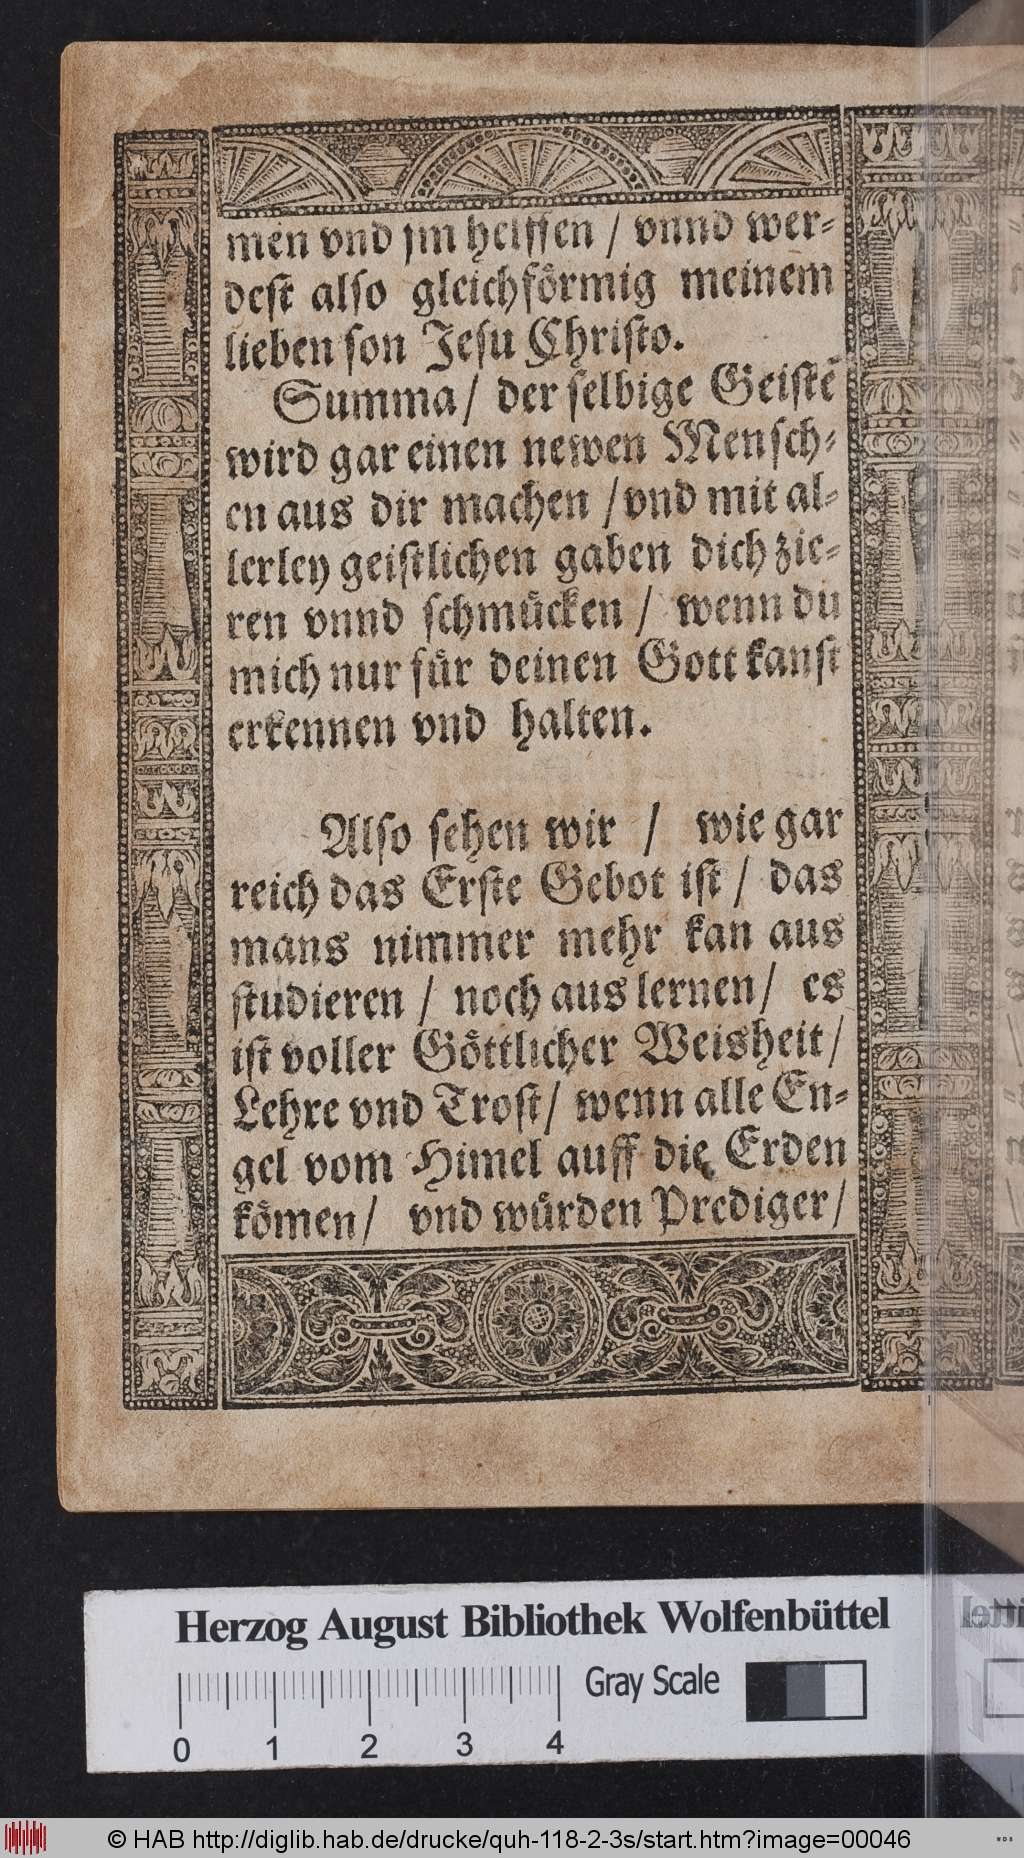 men vnd jm helffen / vnnd wer-
dest also gleichförmig meinem
lieben son Jesu Christo.
Summa / der selbige Geistē
wird gar einen newen Mensch-
en aus dir machen / vnd mit al-
lerley geistlichen gaben dich zie-
ren vnnd schmücken / wenn du
mich nur für deinen Gott kanst
erkennen vnd halten.
Also sehen wir / wie gar
reich das Erste Gebot ist / das
mans nimmer mehr kan aus
studieren / noch aus lernen / es
ist voller Göttlicher Weisheit /
Lehre vnd Trost / wenn alle En-
gel vom Himel auff die Erden
kömen / vnd würden Prediger /
Herzog August Bibliothek Wolfenbüttel
Gray Scale
0 1 2 3 4
© HAB http://diglib.hab.de/drucke/quh-118-2-3s/start.htm?image=00046